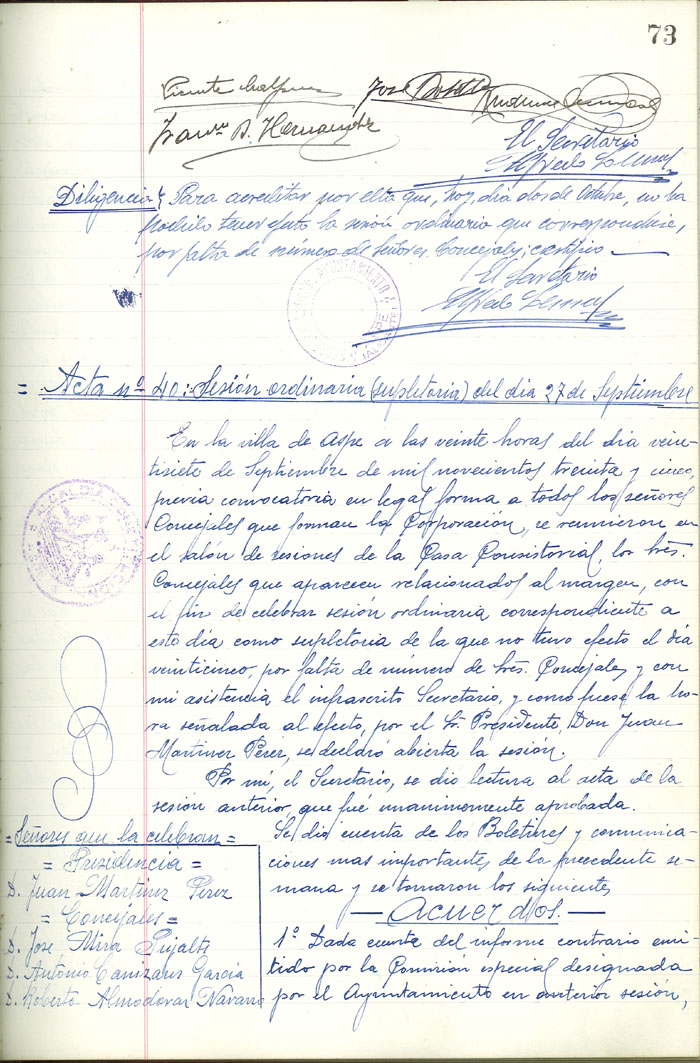 73
Vicente
José Botella
Franco D. Hernandez
El Secretario
Alfredo
Diligencia} Para acreditar por esta que, hoy, dia dos de Octubre, no ha
podido tener efecto la sesión ordinaria que correspondia,
por falta de número de Señores Concejales; certifico
El Secretario
Alfredo
AYUNTAMIENTO
= Acta nº 40: Sesión ordinaria (supletoria) del dia 27 de Septiembre
En la villa de Aspe a las veinte horas del dia vein-
tisiete de Septiembre de mil novecientos treinta y cinco,
previa convocatoria en legal forma a todos los señores
Concejales que forman la Corporación, se reunieron en
el salón de sesiones de la Casa Consistorial, los Sres.
Concejales que aparecen relacionados al margen, con
el fin de celebrar sesión ordinaria correspondiente a
este día como supletoria de la que no tuvo efecto el día
veinticinco, por falta de número de Sres. Concejales y con
mi asistencia el infrascrito Secretario, y como fuese la ho-
ra señalada al efecto, por el Sr. Presidente, Don Juan
Martinez Pérez, se declaró abierta la sesión.
Por mi, el Secretario, se dio lectura al acta de la
sesión anterior, que fué unanimemente aprobada.
= Señores que la celebran =
= Presidencia =
D. Juan Martinez Pérez
= Concejales =
D. José Mira Pujalte
D. Antonio Cañizares García
D. Roberto Almodovar Navarro
Se dio cuenta de los Boletines y comunica-
ciones mas importantes, de la precedente se-
mana y se tomaron los siguientes
— Acuerdos. —
1º Dada cuenta del informe contrario emi-
tido por la Comisión especial designada
por el Ayuntamiento en anterior sesión,